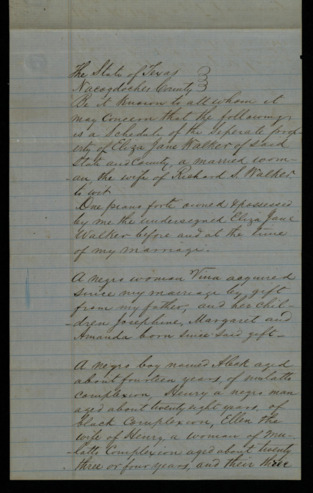 The State of Texas
Nacogdoches County
Be it Known to all whom it
may Concern that the following
is a Schedule of the Seperate prop
erty of Eliza Jane Walker of said
State and County, a married wom
an, the wife of Richard S. Walker
to wit
One piano forte owned & possessed
by me the undersigned Eliza Jane
Walker before and at the time
of my marriage.
A negro woman Vina acquired
since my marriage by gift
from my father, and her chil
dren Josephine, Margaret and
Amanda born since said gift_
A negro boy named Aleck aged
about fourteen years, of mulatto
complexion, Henry a negro man
aged about twenty eight years, of
black Complexion, Ellen the
wife of Henry a woman of Mu-
latto Complexion aged about twenty
three or four years, and their three